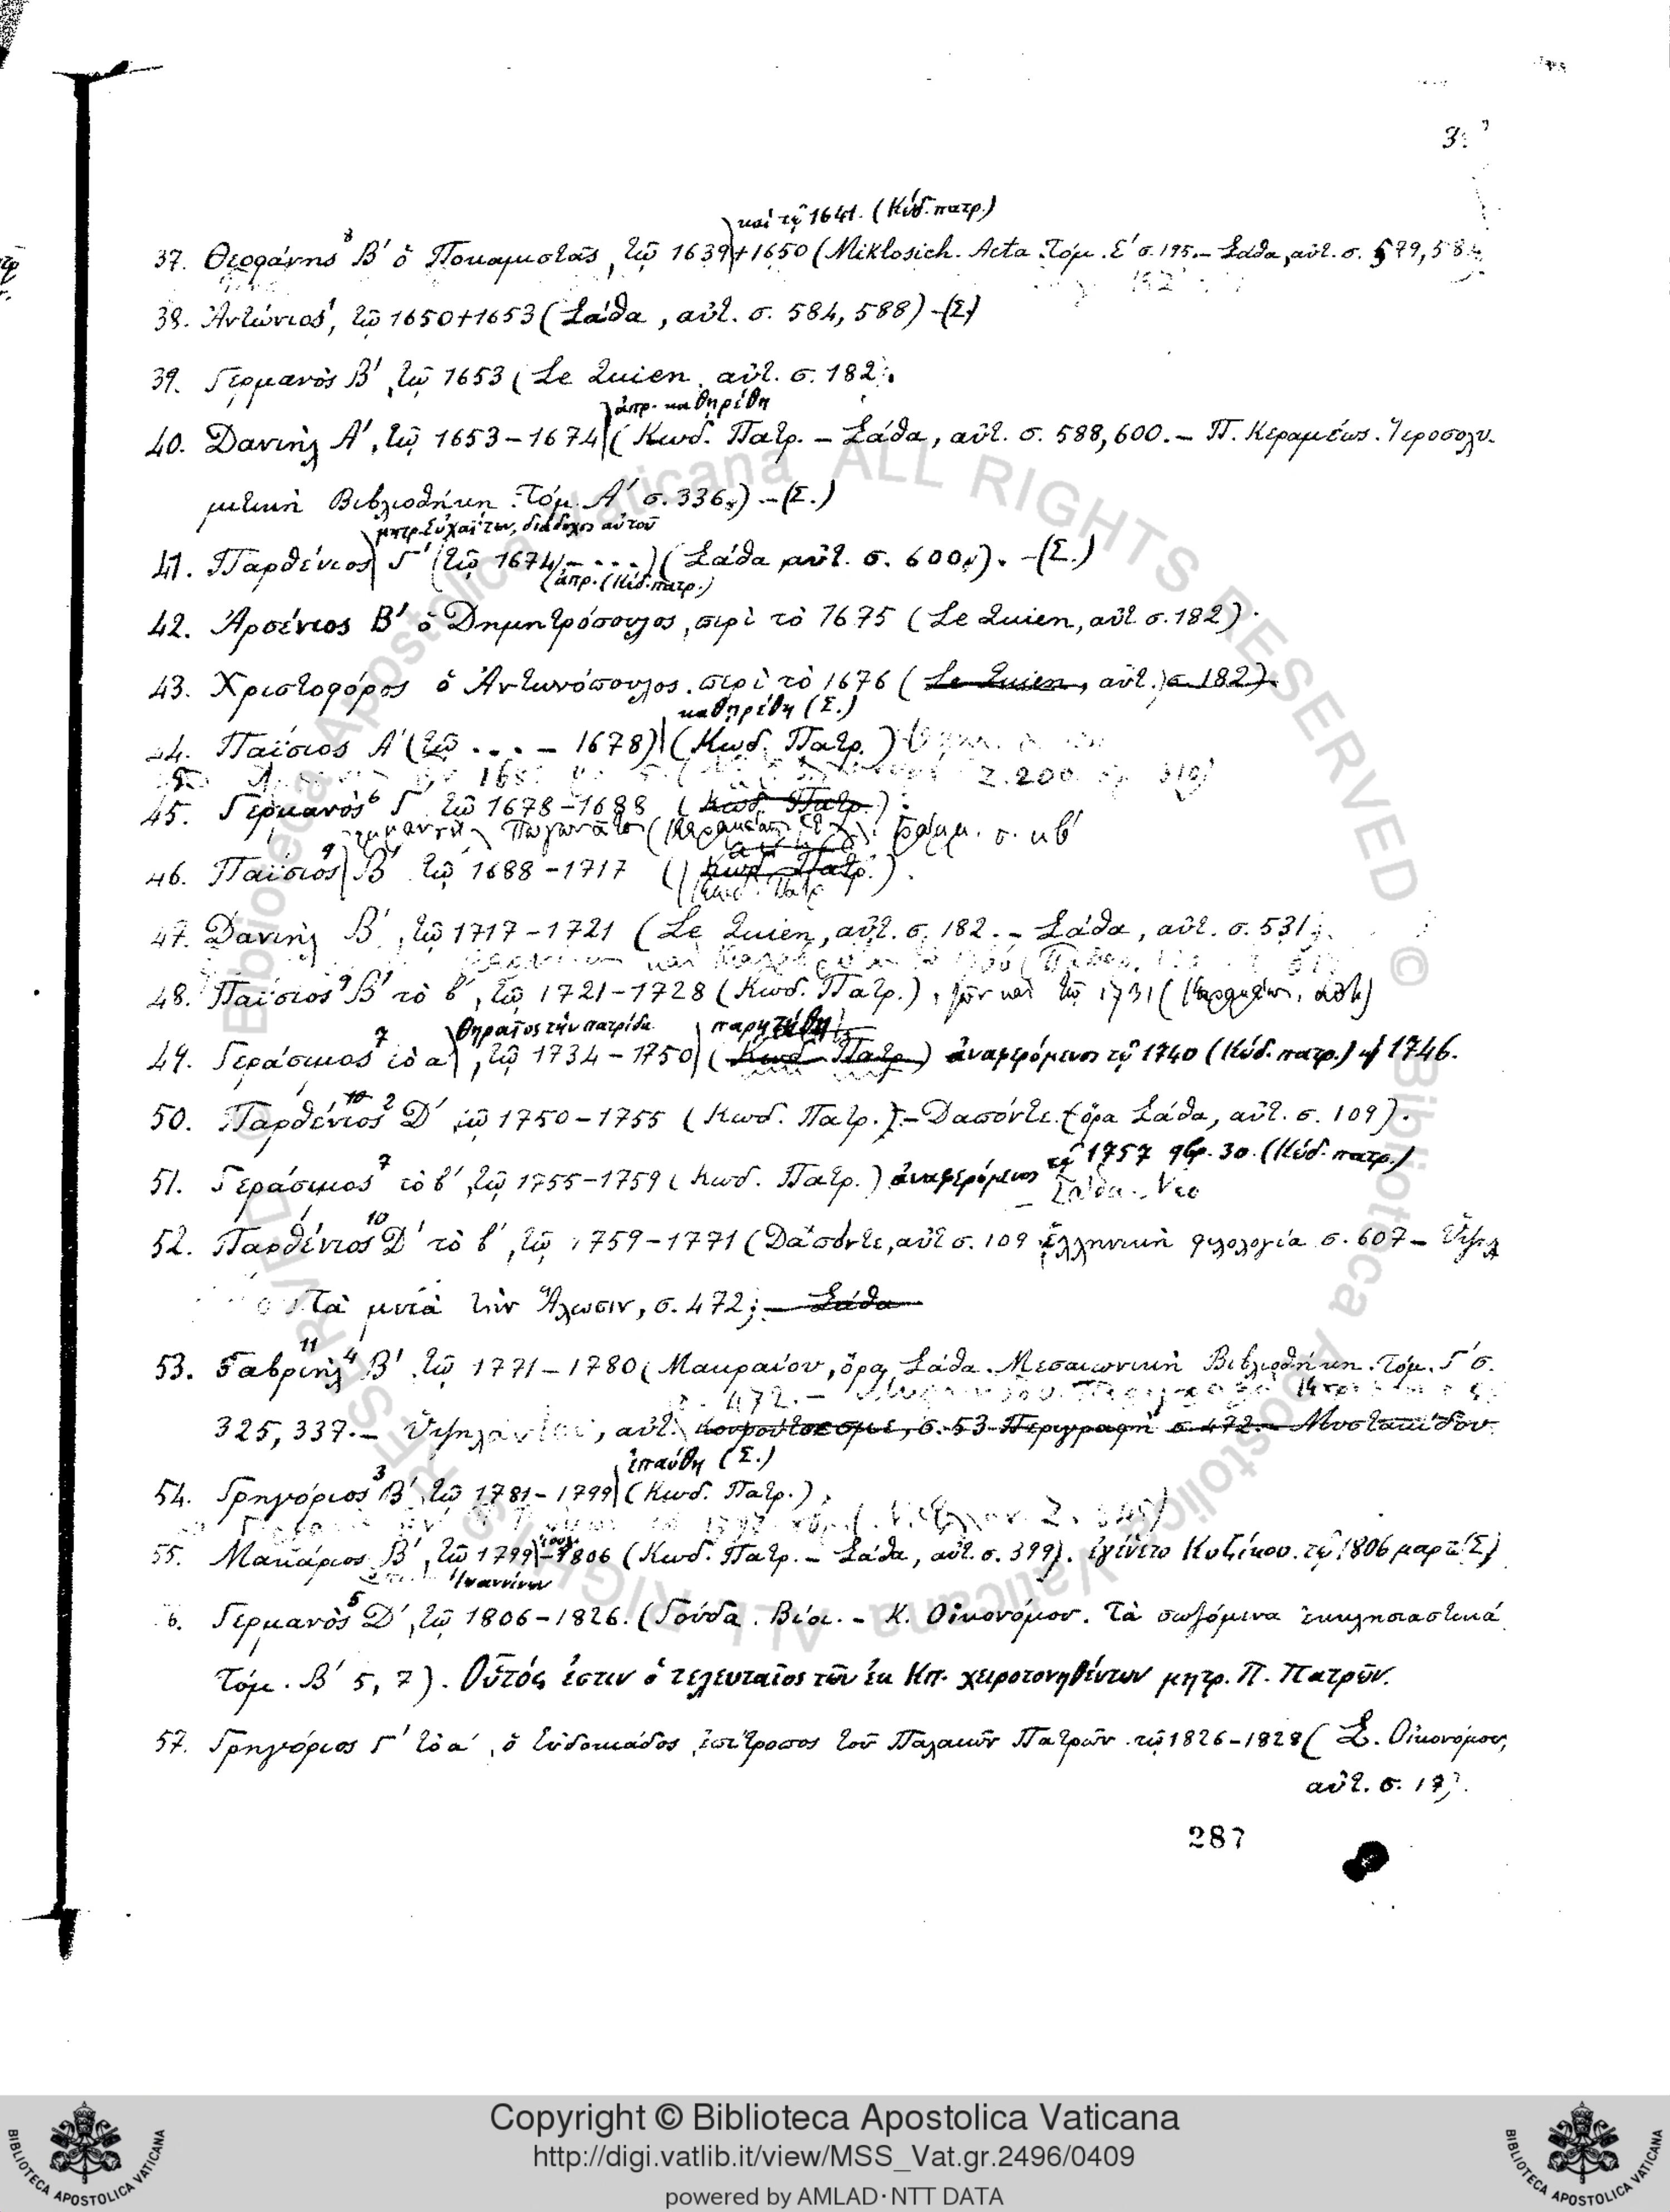 3
καὶ τῷ 1641. (Κώδ. πατρ.)
37. Θεοφάνης Β΄ ὁ Ποκαμισᾶς, τῷ 1639 + 1650 (Miklosich. Acta. Τόμ. Ε΄ σ. 195. – Σάθα, αὐτ. σ. 579, 584
38. Ἀντώνιος, τῷ 1650 + 1653 (Σάθα, αὐτ. σ. 584, 588) – (Σ)
39. Γερμανὸς Β΄, τῷ 1653 (Le Quien, αὐτ. σ. 182).
ἀπρ. καθῃρέθη
40. Δανιὴλ Α΄, τῷ 1653 – 1674 (Κωδ. Πατρ. – Σάθα, αὐτ. σ. 588, 600. – Π. Κεραμέως. Ἱεροσολυ-
μιτικὴ Βιβλιοθήκη. Τόμ. Α΄ σ. 336.) – (Σ.)
μητρ. Εὐχαΐτων, διάδοχος αὐτοῦ
41. Παρθένιος Γ΄ (τῷ 1674 – . . . .) (Σάθα αὐτ. σ. 600). – (Σ.)
ἀπρ. (Κώδ. πατρ.)
42. Ἀρσένιος Β΄ ὁ Δημητρόπουλος, περὶ τὸ 1675 (Le Quien, αὐτ. σ. 182).
43. Χριστοφόρος ὁ Ἀντωνόπουλος. περὶ τὸ 1676 (Le Quien, αὐτ. σ. 182).
καθῃρέθη (Σ.)
44. Παΐσιος Α΄ (τῷ . . . – 1678) (Κωδ. Πατρ.)
45. Γερμανὸς Γ΄ τῷ 1678 – 1688 (Κωδ. Πατρ.).
σ. κβ΄
46. Παΐσιος Β΄ τῷ 1688 – 1717 (Κωδ. Πατρ.).
47. Δανιὴλ Β΄, τῷ 1717 – 1721 (Le Quien, αὐτ. σ. 182. – Σάθα, αὐτ. σ. 531).
48. Παΐσιος Β΄ τὸ β΄, τῷ 1721 – 1728 (Κωδ. Πατρ.), καὶ τῷ 1731
Θηραῖος τὴν πατρίδα παρῃτήθη
49. Γεράσιμος 7 τὸ α΄, τῷ 1734 – 1750 (Κωδ. Πατρ.) ἀναφερόμενος τῷ 1740 (Κώδ. πατρ.) 1746.
50. Παρθένιος Δ΄ τῷ 1750 – 1755 (Κωδ. Πατρ.) – Δαπόντε. (ὅρα Σάθα, αὐτ. σ. 109).
51. Γεράσιμος 7 τὸ β΄, τῷ 1755 – 1759 (Κωδ. Πατρ.) ἀναφερόμενος τῷ 1757 9βρ. 30. (Κώδ. πατρ.)
52. Παρθένιος 10 Δ΄ τὸ β΄, τῷ 1759 – 1771 (Δαπόντε, αὐτ σ. 109 Ἑλληνικὴ φιλολογία σ. 607 – Ὑψηλ
Τὰ μετὰ τὴν Ἅλωσιν, σ. 472; – Σάθα
53. Γαβριὴλ Β΄. τῷ 1771 – 1780 (Μακραίου, ὅρα Σάθα. Μεσαιωνικὴ Βιβλιοθήκη. Τόμ. Γ΄ σ.
325, 337. – Ὑψηλάντου, αὐτ. σ. 53 Περιγραφὴ σ. 472. – Μυστακίδου
ἐπαύθη (Σ.)
54. Γρηγόριος 3 Β΄, τῷ 1781 – 1799 (Κωδ. Πατρ.).
55. Μακάριος Β΄, τῷ 1799 – 1806 (Κωδ. Πατρ. – Σάθα, αὐτ. σ. 399). ἐγένετο Κυζίκου. τῷ 1806 μαρτ (Σ)
Ἰωαννίνων
6. Γερμανὸς 5 Δ΄, τῷ 1806 – 1826. (Γούδα. Βίοι. – Κ. Οἰκονόμου. Τὰ σωζόμενα ἐκκλησιαστικὰ
Τόμ. Β΄ 5, 7). Οὗτός ἐστιν ὁ τελευταῖος τῶν ἐκ Κπ. χειροτονηθέντων μητρ. Π. Πατρῶν.
57. Γρηγόριος Γ΄ τὸ α΄, ὁ Εὐδοκιάδος, ἐπίτροπος τοῦ Παλαιῶν Πατρῶν τῷ 1826 – 1828 (Σ. Οἰκονόμου,
αὐτ. σ. 17).
287
ALL RIGHTS RESERVED © Biblioteca Apostolica Vaticana
Copyright © Biblioteca Apostolica Vaticana
http://digi.vatlib.it/view/MSS_Vat.gr.2496/0409
powered by AMLAD·NTT DATA
BIBLIOTECA APOSTOLICA VATICANA
BIBLIOTECA APOSTOLICA VATICANA